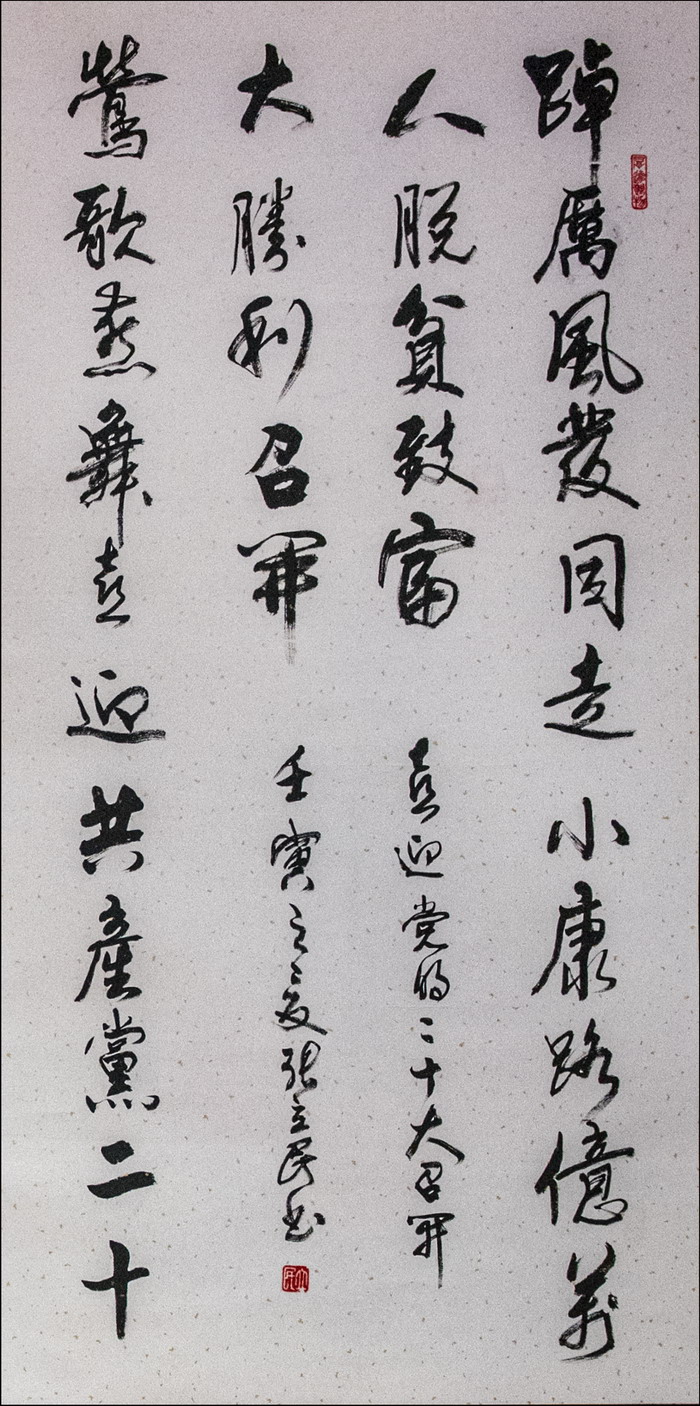 踔厲風發同走小康路億萬
人脫貧致富
鶯歌燕舞喜迎共產黨二十
大勝利召開
喜迎党的二十大召開
壬寅之夏張立民书